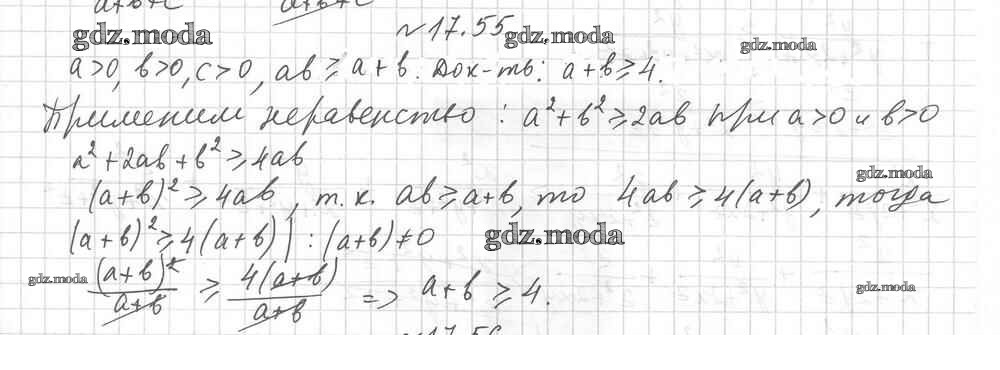 a+b+c a+b+c
№17.55
gdz.moda gdz.moda gdz.moda
a>0, b>0, c>0, ab ≥ a+b. Док-ть: a+b≥4.
Применим неравенство: a²+b²≥2ab при a>0 и b>0
a²+2ab+b²≥4ab
gdz.moda
(a+b)²≥4ab, т.к. ab≥a+b, то 4ab≥4(a+b), тогда
(a+b)²≥4(a+b) | : (a+b)≠0
gdz.moda
gdz.moda
(a+b)²/a+b ≥ 4(a+b)/a+b => a+b≥4.
gdz.moda
№17.56